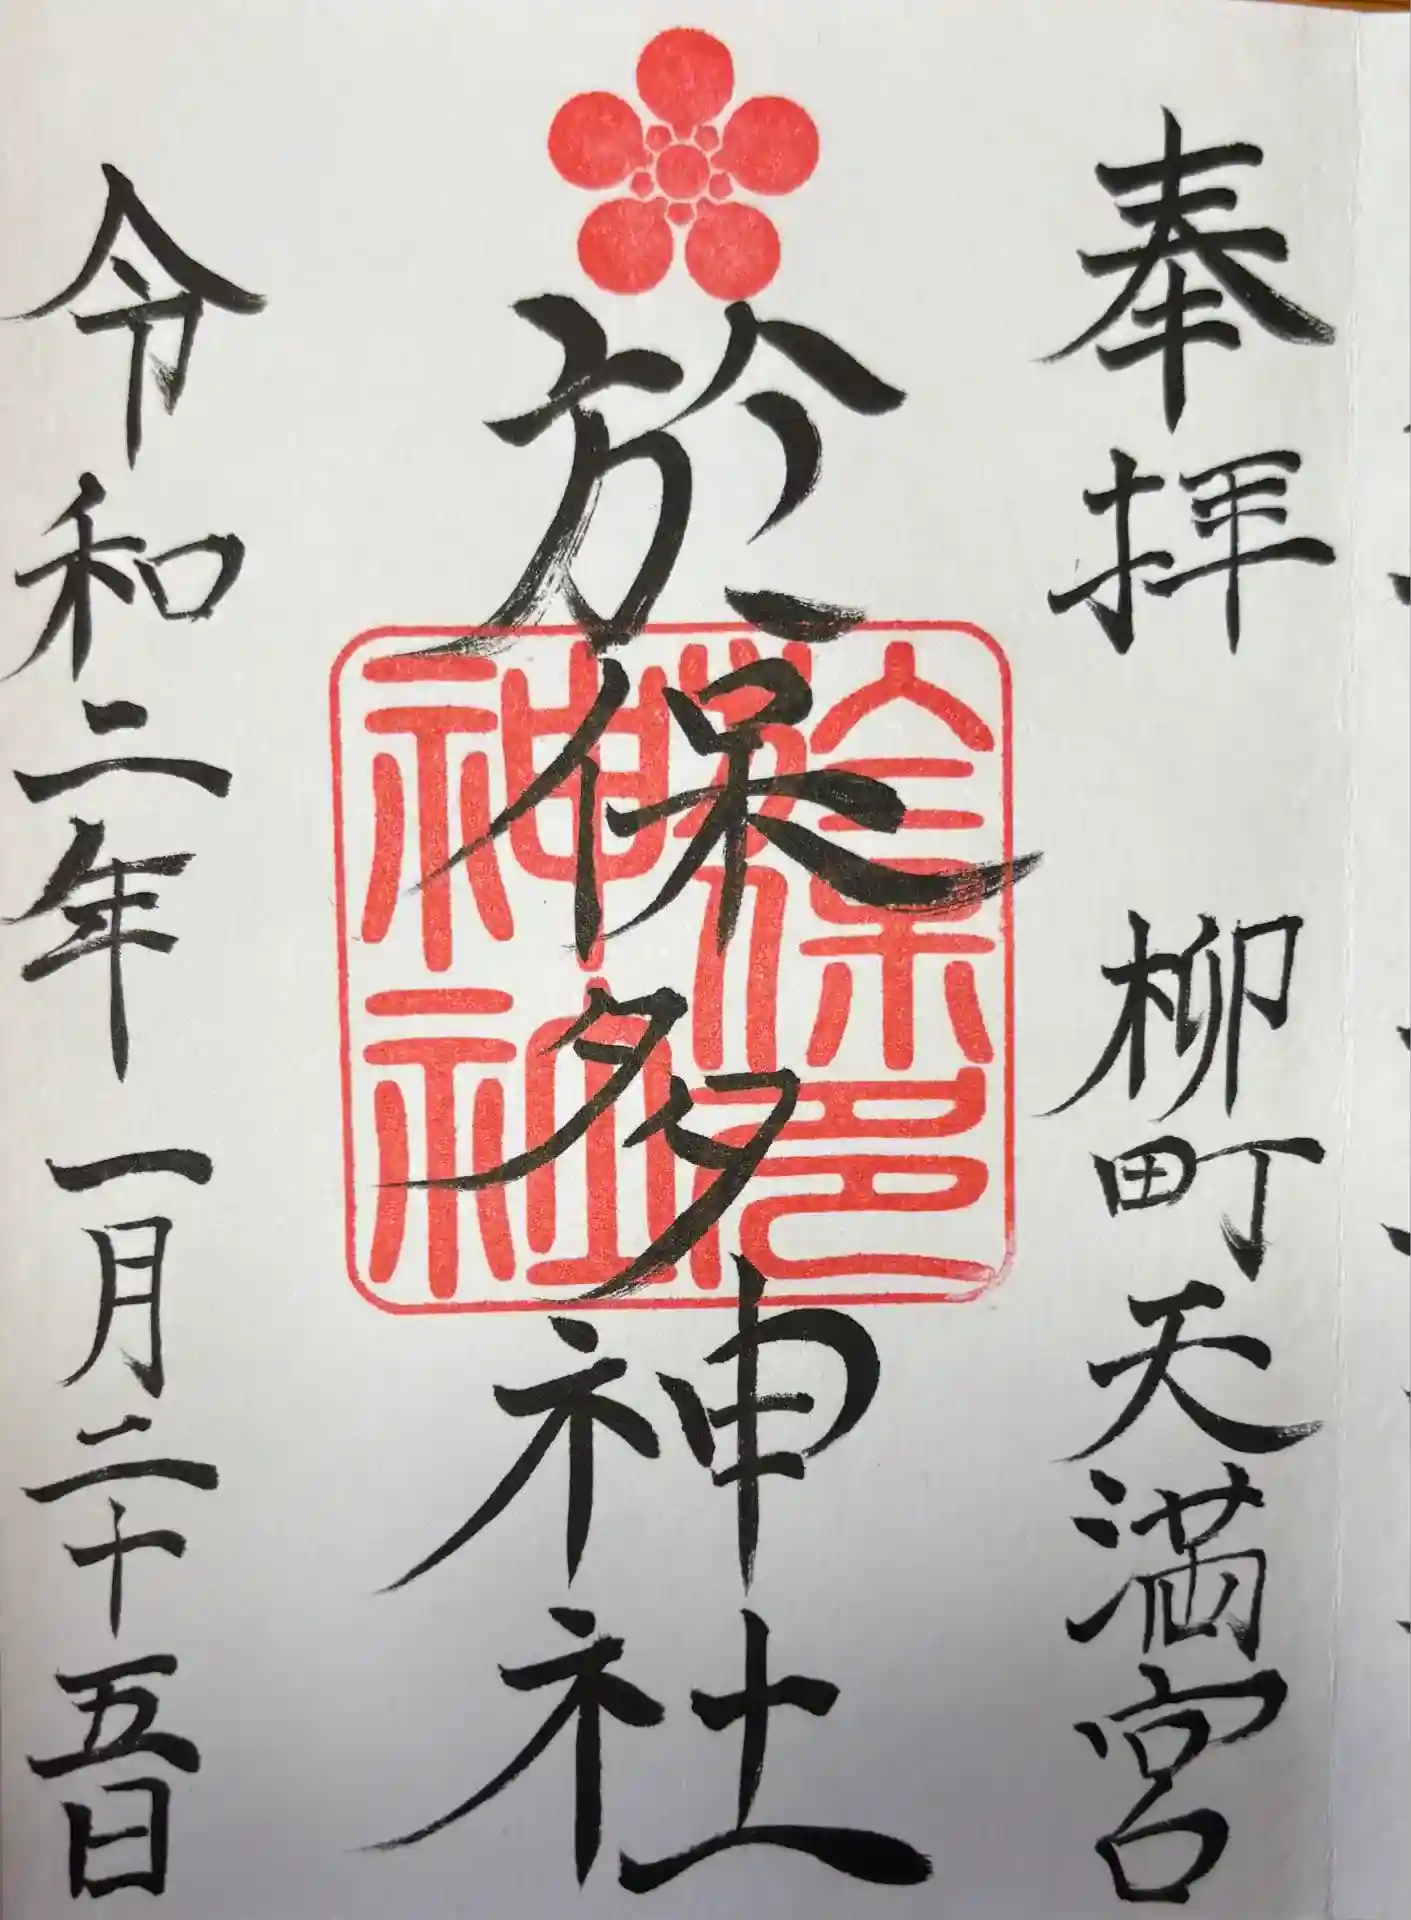 奉拝 柳町天満宮
於保多神社
於保多神社
令和二年 一月二十五日